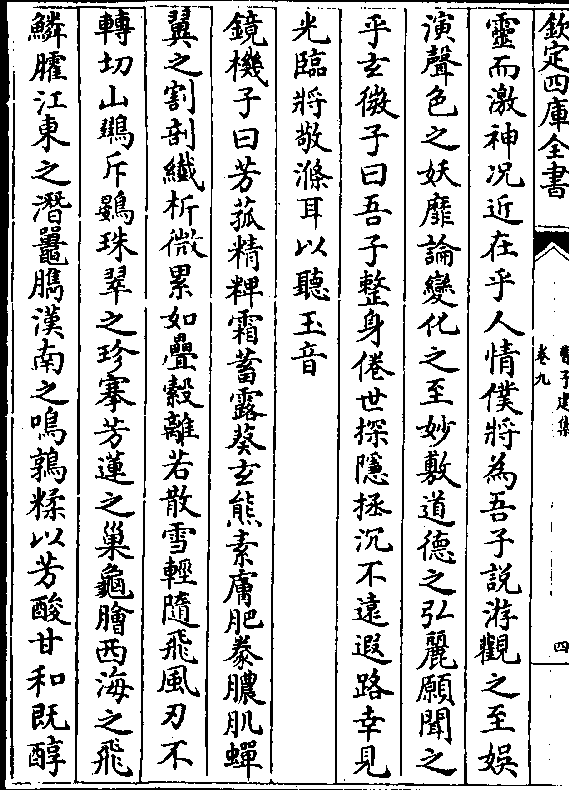 欽定四庫全書
曹子建集
卷九
四
靈而激神况近在乎人情僕將為吾子說游觀之至娱
演聲色之妖靡論變化之至妙敷道德之弘麗願聞之
乎玄微子曰吾子整身倦世探隱拯沉不遠遐路幸見
光臨將敬滌耳以聽玉音
鏡機子曰芳菰精粺霜蓄露葵玄熊素膚肥豢膿肌蟬
翼之割剖纎析微累如疊縠離若散雪輕隨飛風刃不
轉切山鵽斥鷃珠翠之珍搴芳蓮之巢龜膾西海之飛
鱗臛江東之潛鼉臇漢南之鳴鶉糅以芳酸甘和既醇